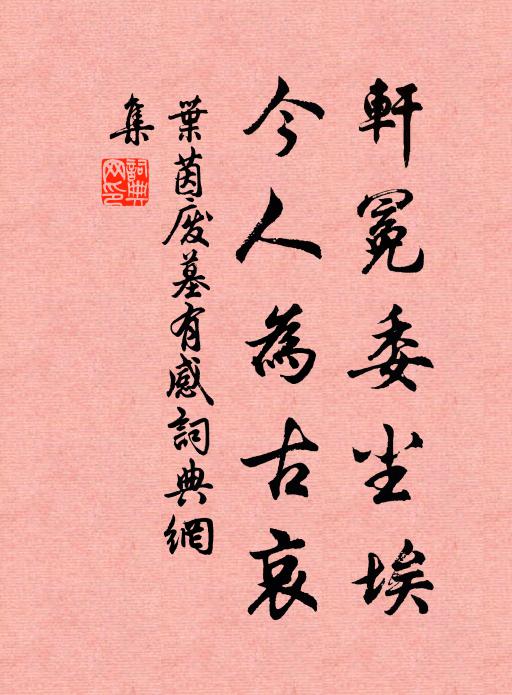 軒冕委尘埃
今人為古哀
葉茵废墓有感詞典網
集
詞典
网印